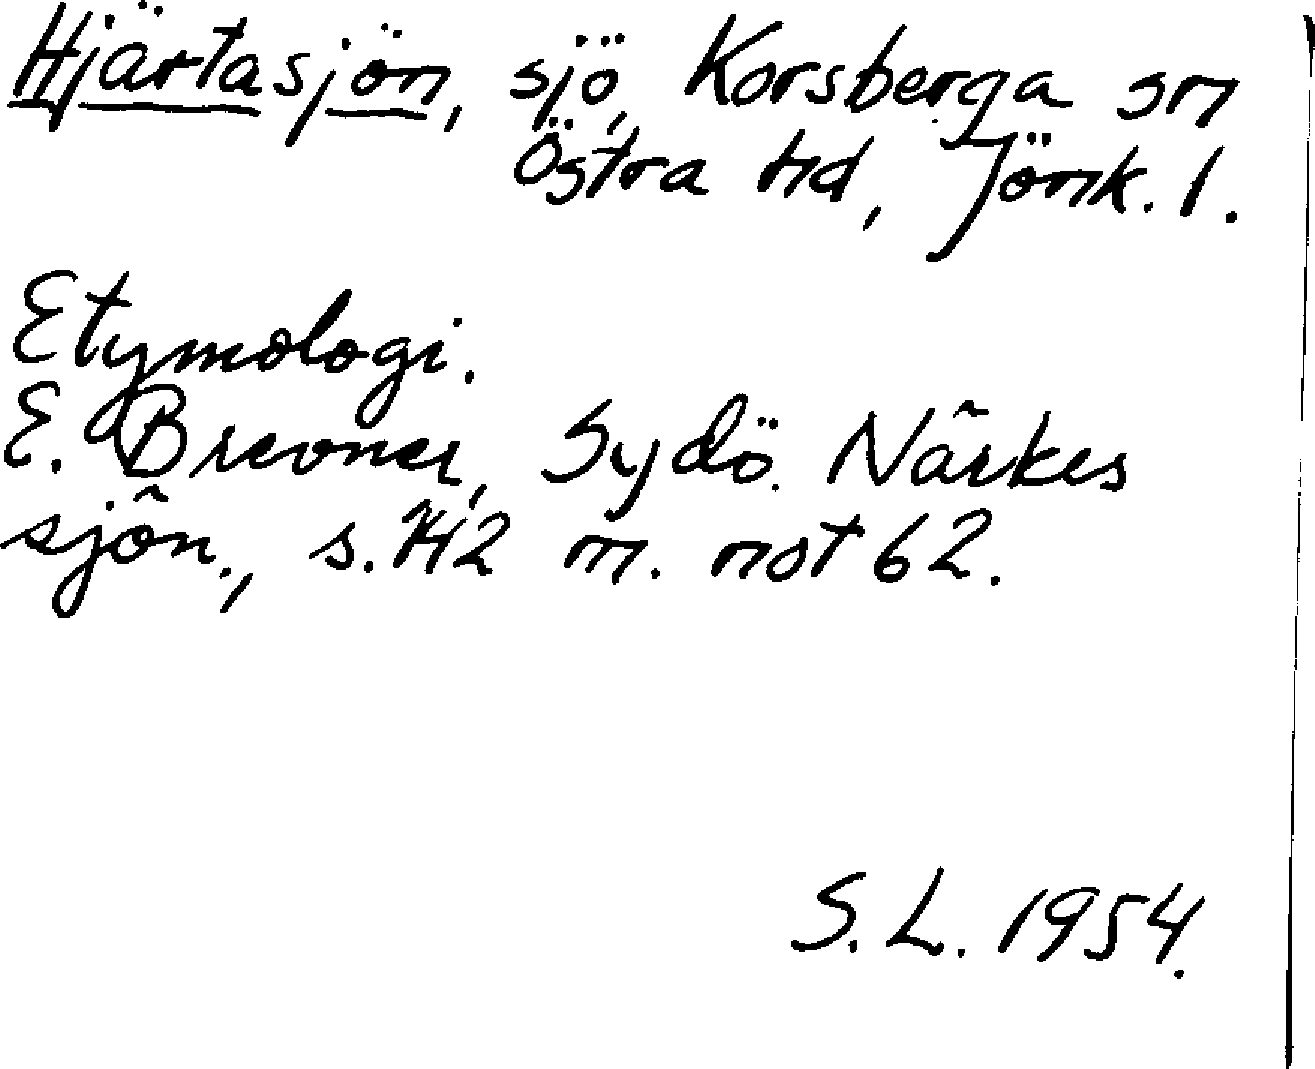 Hjärtasjön, sjö, Korsberga sn
Östra hd, Jönk. l.
Etymologi.
E. Brevner, Sydö. Närkes
sjön., s. 142 m. not 62.
S. L. 1954.